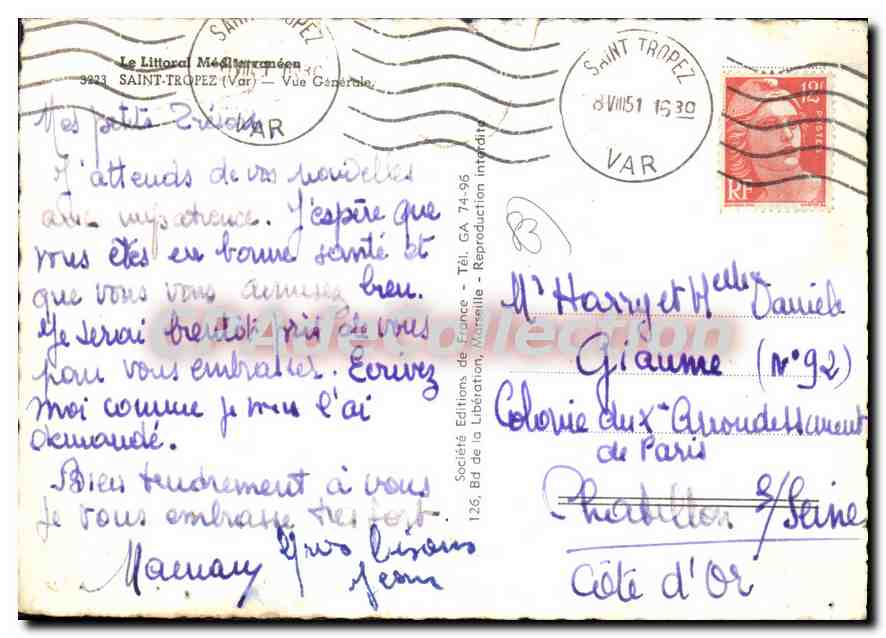 Le Littoral Méditerranéen
3223 SAINT-TROPEZ (Var) — Vue Générale.
SAINT TROPEZ
VAR
SAINT TROPEZ
8 VIII 51 16 30
VAR
12F
POSTES
RF
Mes petits Trésors
J'attends de vos nouvelles
avec impatience. J'espère que
vous êtes en bonne santé et
que vous vous amusez bien.
Je serai bientôt près de vous
pour vous embrasser. Ecrivez
moi comme je vous l'ai
demandé.
Bien tendrement à vous
je vous embrasse très fort
Maman
Gros bisous
Jean
Société Editions de France - Tél. GA 74-96
126, Bd de la Libération, Marseille - Reproduction interdite
83
Mr Harry et Melle Danièle
Giaume (N° 92)
Colonie du Xe Arrondissement
de Paris
Chatillon s/Seine
Côte d'Or
CPAdeCollection